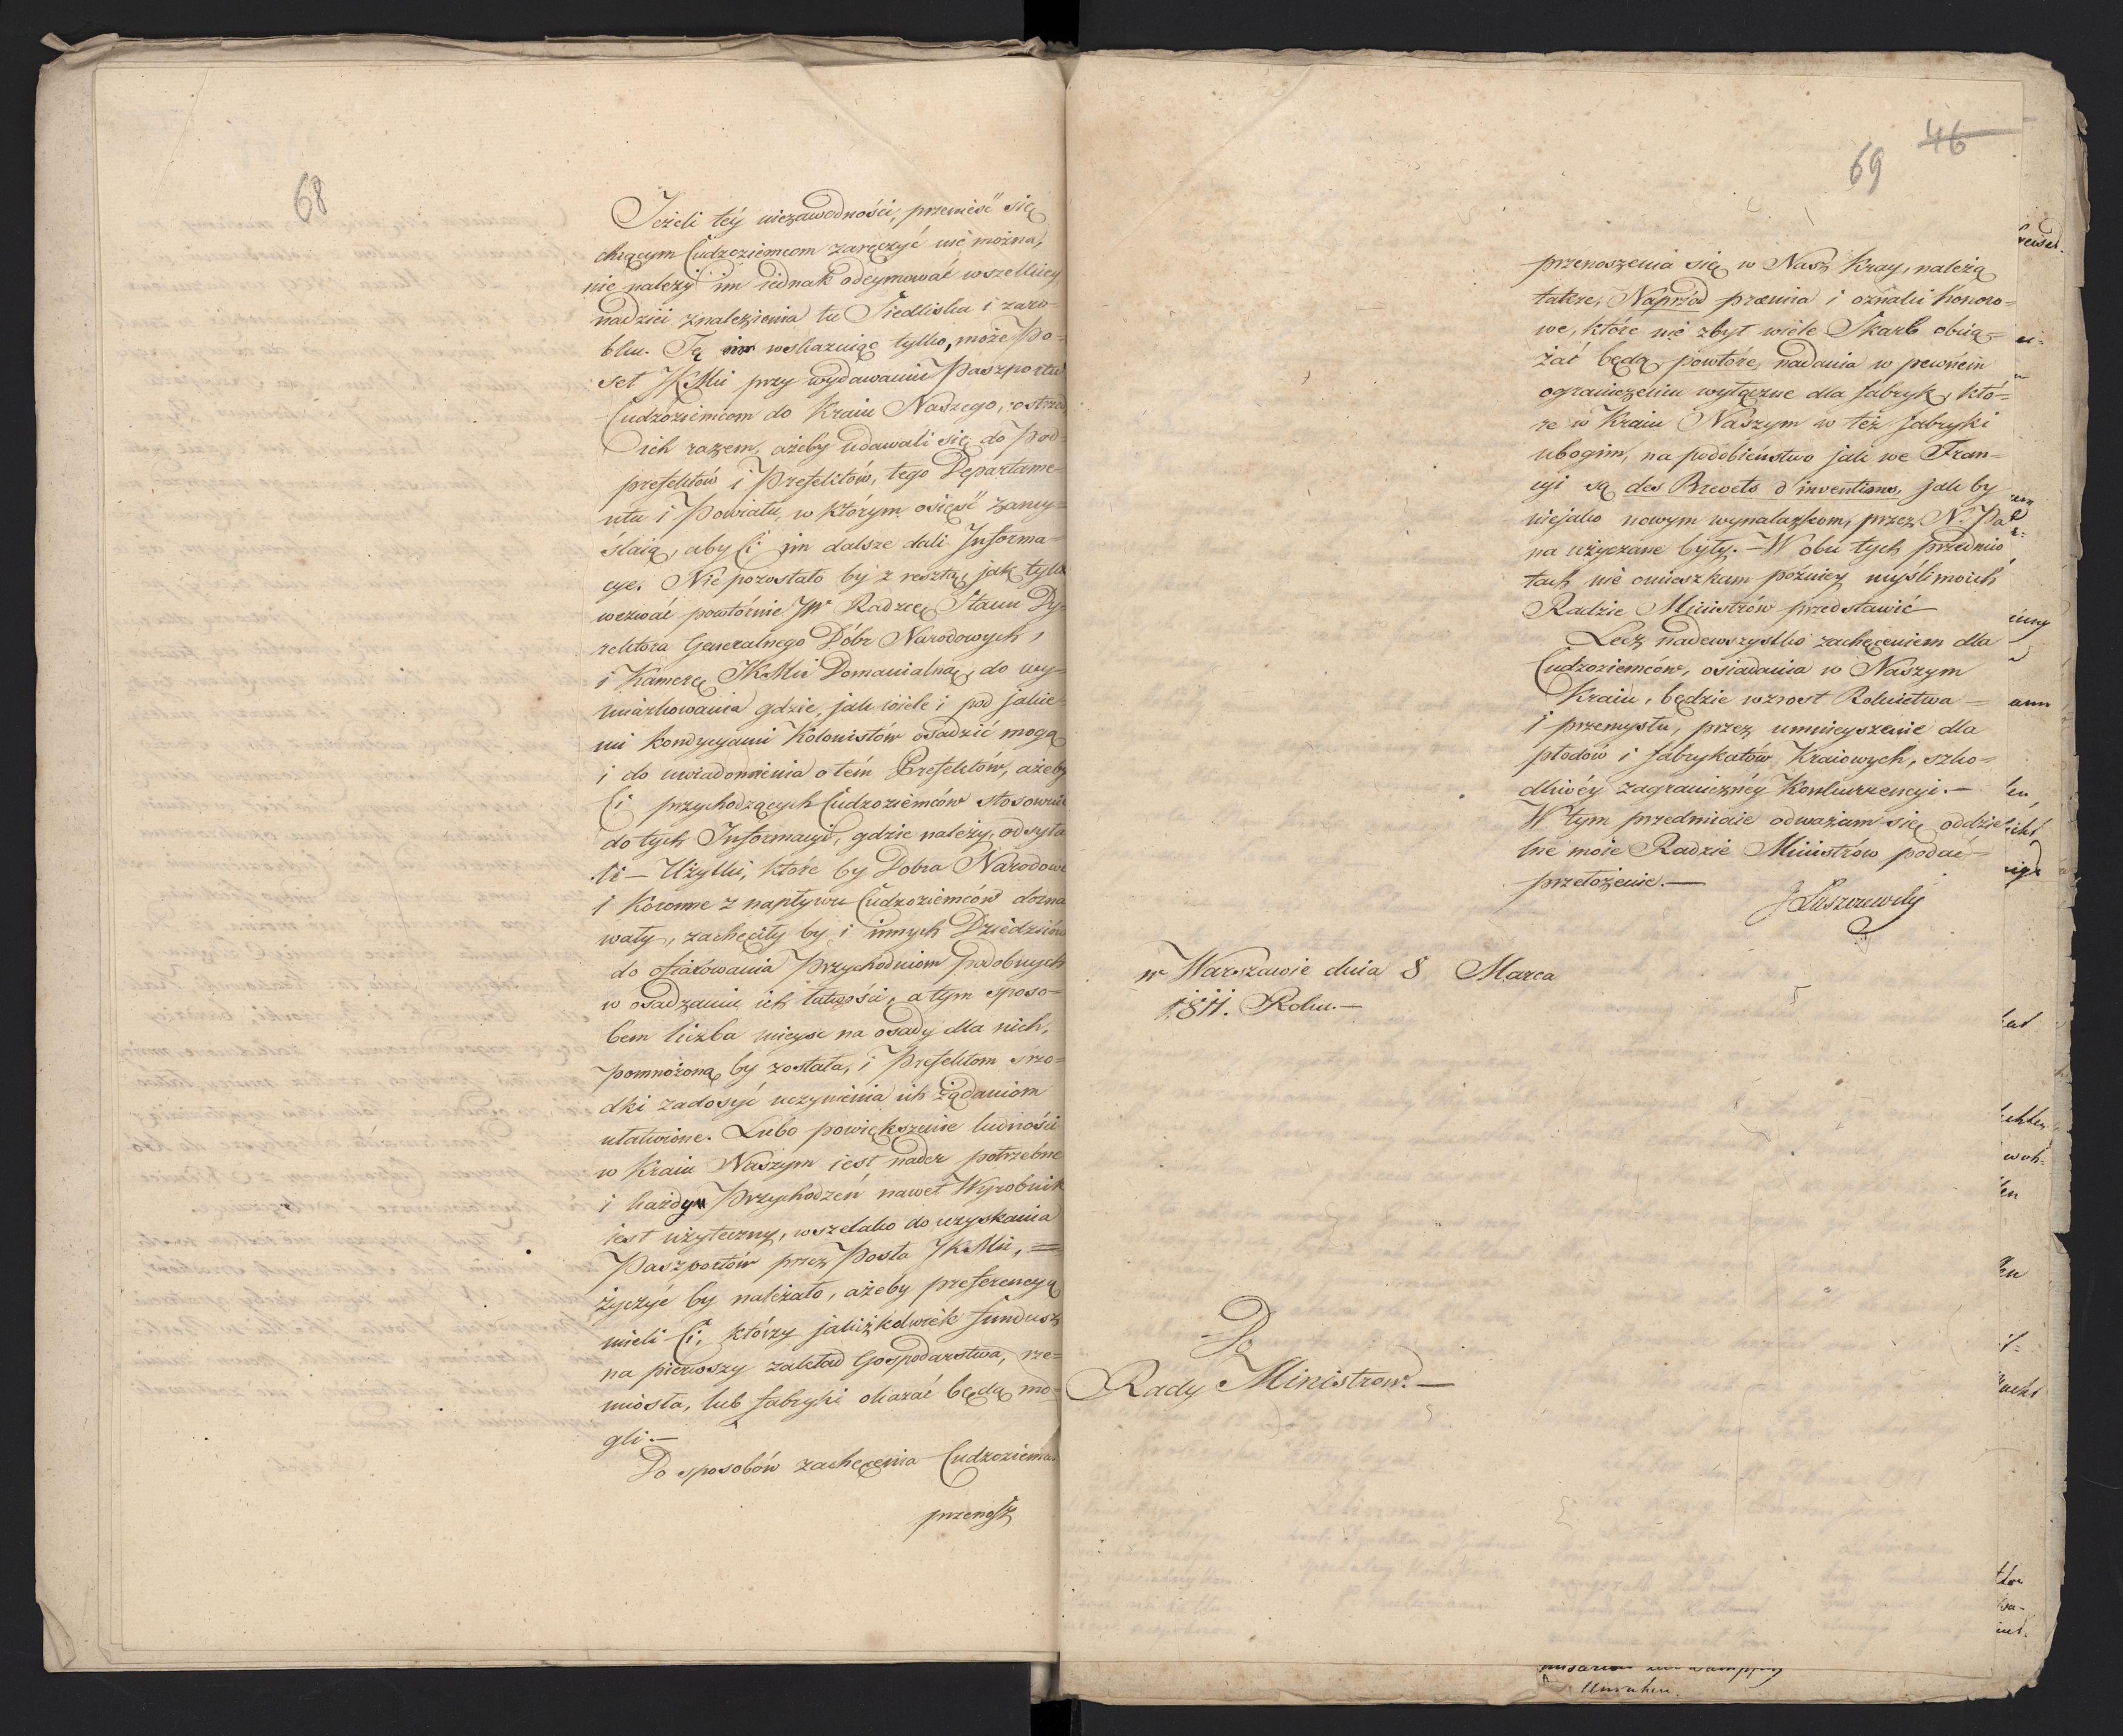 68
Jeżeli téy niezawodności, przenieść się
chcącym Cudzoziemcom zaręczyć nié można,
nie należy im iednak odeymować wszelkiey
nadziei znalezienia tu Siedliska i zaro-
bku. Tę wskazuiąc tylko, może Po-
seł JKMci przy wydawaniu Paszportu
Cudzoziemcom do Kraiu Naszego, ostrzedz
ich razem, ażeby udawali się do Pod-
prefektów i Prefektów, tego Departame-
ntu i Powiatu, w którym osieść zamy-
ślaią, aby Ci im dalsze dali Informa-
cye. Nie pozostało by z resztą, jak tylko
wezwać powtórnie JW Radzcę Stanu Dy-
rektora Generalnego Dóbr Narodowych,
i Kamerę JKMci Domanialną, do wy-
miarkowania gdzie, jak wiele i pod jakie-
mi kondycyami Kolonistów osadzić mogą
i do uwiadomienia o tém Prefektów, ażeby
Ci przychodzących Cudzoziemców stosownie
do tych Informacyi, gdzie należy, odsyła
li – Użytki, które by Dobra Narodowe
i Koronne z napływu Cudzoziemców dozna
wały, zachęciły by i innych Dziedziców
do ofiarowania Przychodniom podobnych
w osadzaniu ich łatwości, a tym sposo-
bem liczba mieysc na osady dla nich,
pomnożoną by została, i Prefektom śrzo-
dki zadosyć uczynienia ich żądaniom
ułatwione. Lubo powiększenie ludności
w Kraiu Naszym iest nader potrzebne
i każdy Przychodzeń nawet Wyrobnik
iest użyteczny, wszelako do uzyskania
Paszportów przez Posła JKMci, =
życzyć by należało, ażeby preferencyą
mieli Ci, którzy jakiżkolwiek fundusz
na pierwszy zakład Gospodarstwa, rze-
miosła, lub fabryki okazać będą mo-
gli. –
Do sposobów zachęcenia Cudzoziemców
przenosz
46
69
przenoszenia się w Nasz Kray, należą
także, Naprzód præmia i oznaki honoro-
we, które nié zbyt wiele Skarb obcią-
żać będą, powtóre, nadania w pewném
ograniczeniu wyłączne dla fabryk, któ-
re w Kraiu Naszym w też fabryki
ubogim, na podobieństwo jak we Fran-
cyi są des Brevets d'inventions, jak by
niejako nowym wynalazkom, przez N. Pa
na użyczane były. – W obu tych przedmio
tach nié omieszkam późniey myśli moich
Radzie Ministrów przedstawić –
Lecz nadewszystko zachęceniem dla
Cudzoziemców, osiadania w Naszym
Kraiu, będzie wzrost Rolnictwa –
i przemysłu, przez umnieyszenie dla
płodów i fabrykatów Kraiowych, szko-
dliwéy zagranicznéy Konkurrencyi. –
W tym przedmiocie odważam się oddziel
lne moie Radzie Ministrów podać –
przełożenie. –
J Łuszczewski
w Warszawie dnia 8 Marca
1811. Roku. –
Do
Rady Ministrow. –